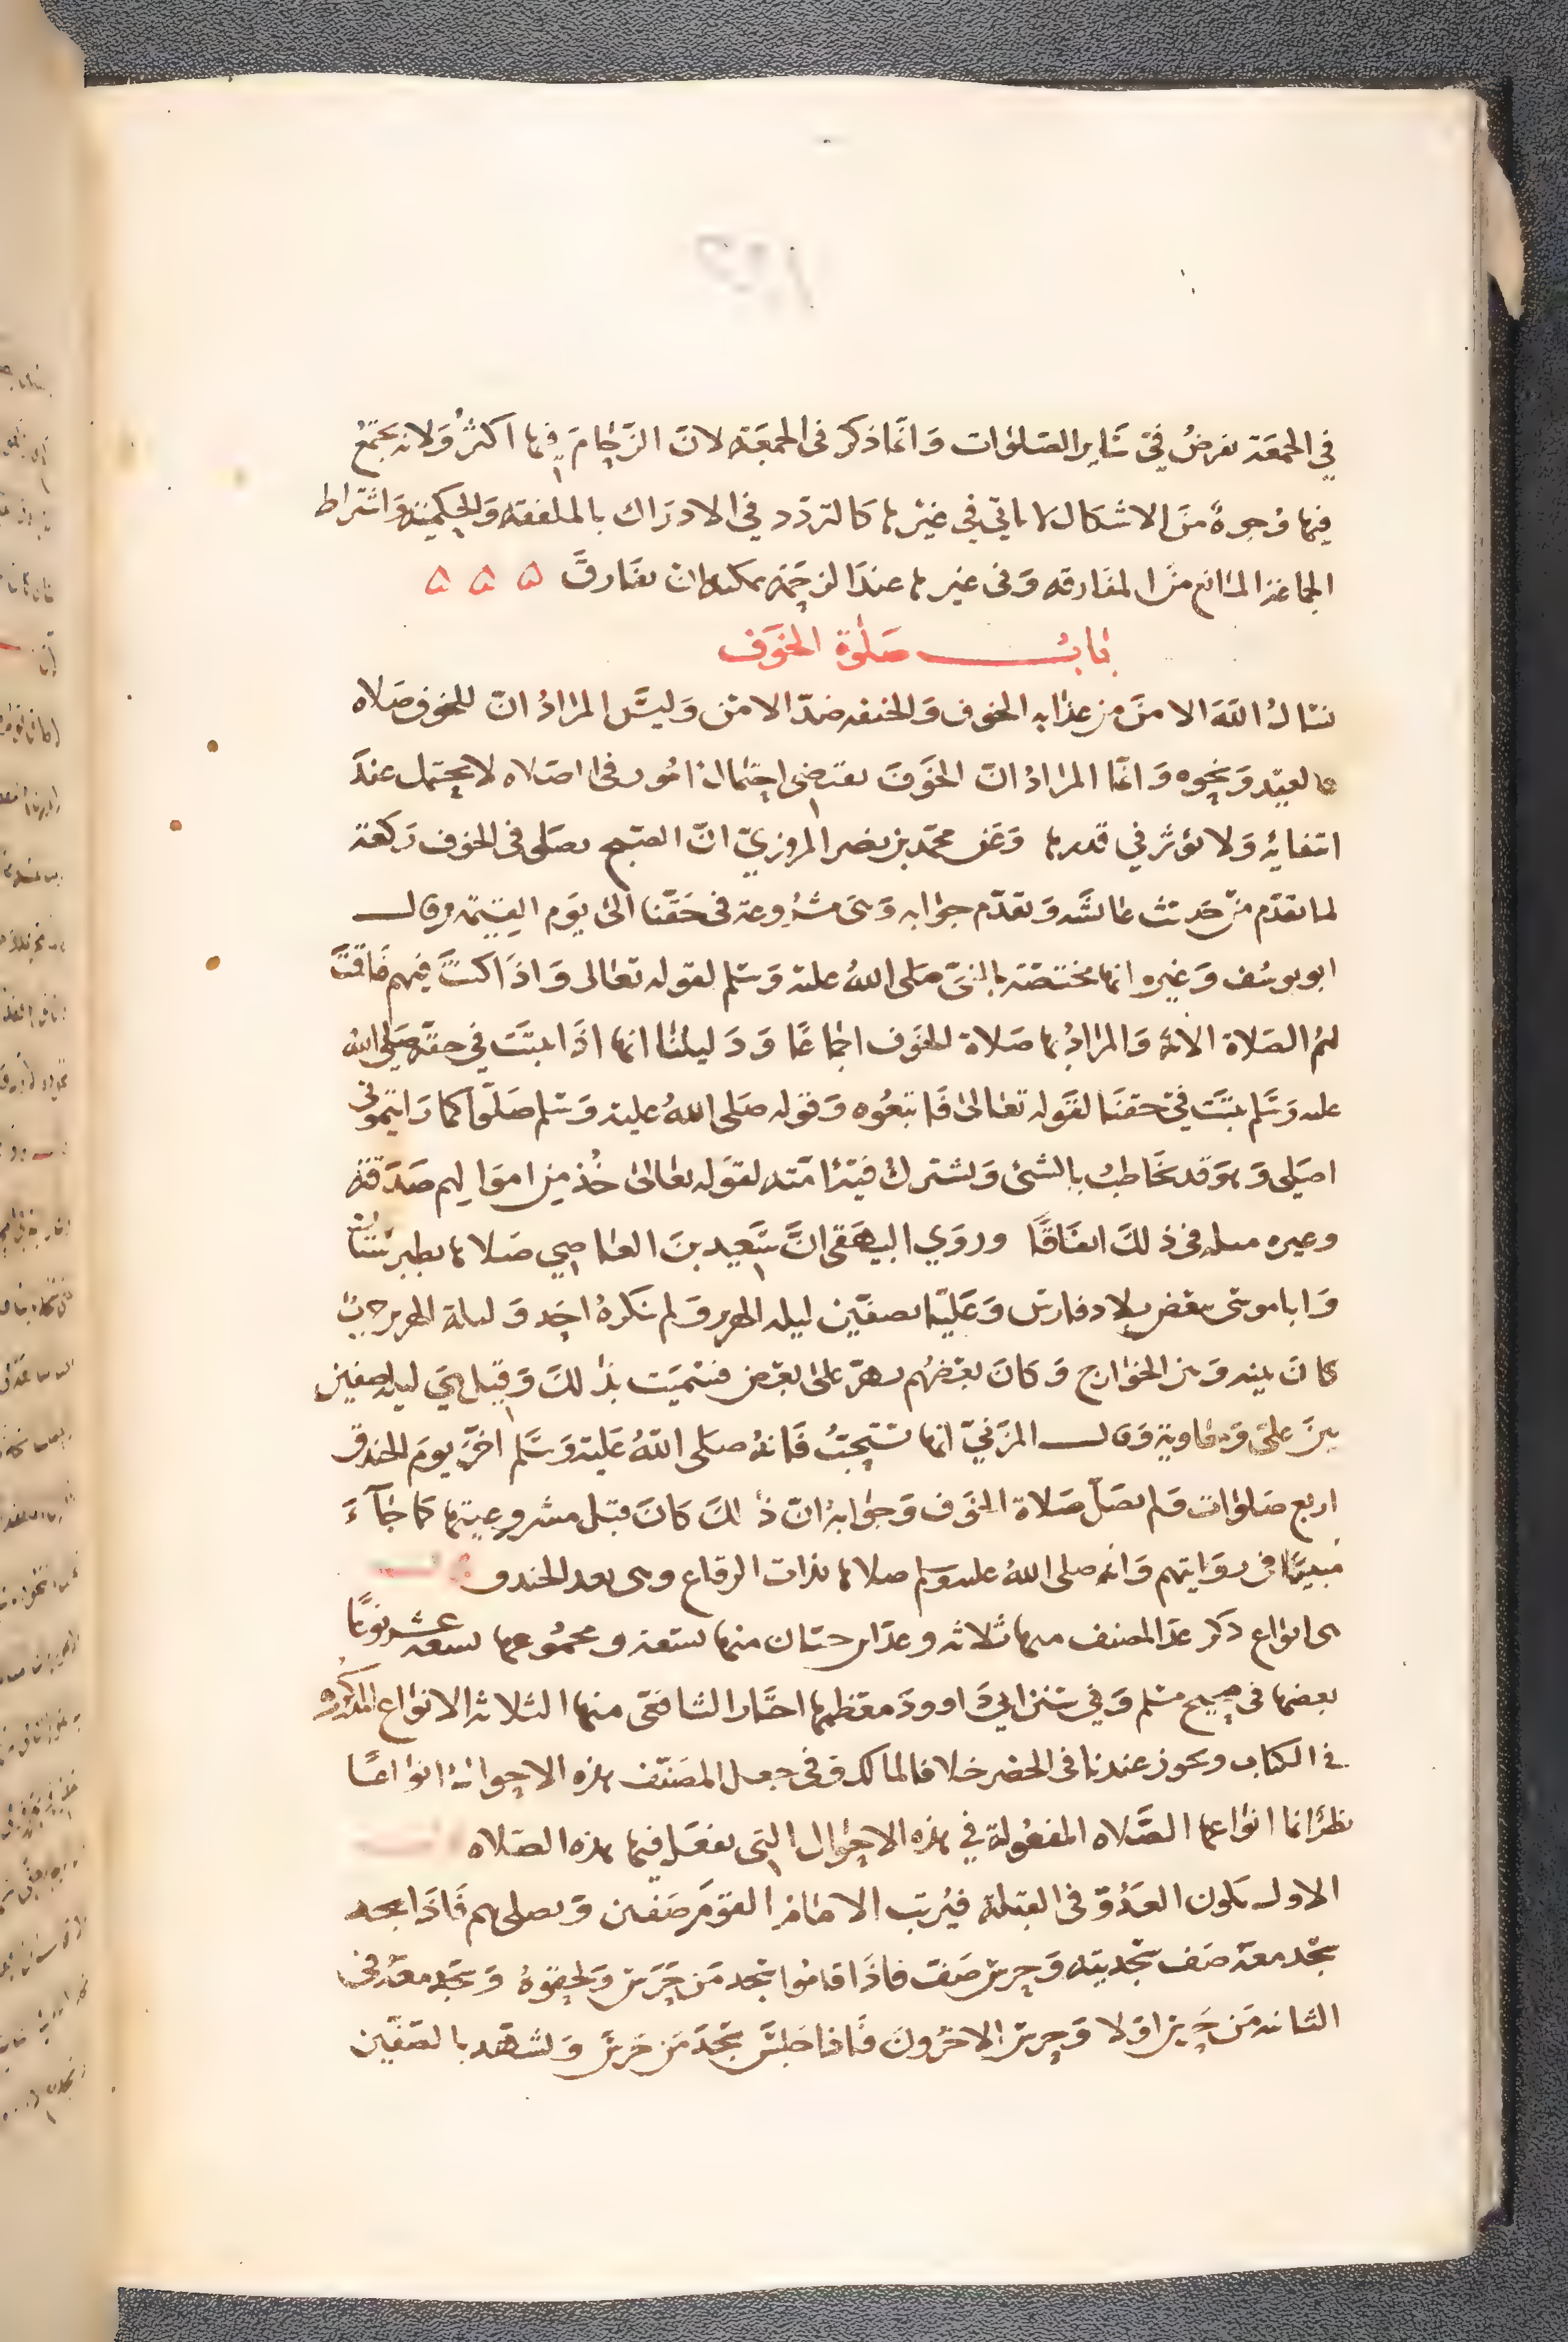 في الجمعة يفرض في سائر الصلوات وانما ذكر في الجمعة لان الزحام فيها اكثر ولانه يجتمع
فيها وجوه من الاشكال لا ياتي في غيرها كالتردد في الادراك بالملفقة والحكمية واشتراط
الجماعة المانع من المفارقة وفي غيرها عند الزحمة يمكنه ان يفارق ۵ ۵ ۵
باب صلوة الخوف
نسال الله الامن من عذابه الخوف والخيفه ضد الامن وليس المراد ان للخوف صلاه
كالعيد ونحوه وانما المراد ان الخوف يقتضي احتمال امور في الصلاه لا يحتمل عند
انتفايه ولا يؤثر في قدرها وعن محمد بن نصر المروزي ان الصبح يصلى في الخوف ركعة
لما تقدم من حديث عائشه وتقدم جوابه وهي مشروعة في حقنا الى يوم القيمه وقال
ابو يوسف وغيره انها مختصة بالنبي صلى الله عليه وسلم لقوله تعالى واذا كنت فيهم فاقمت
لهم الصلاة الايه والمراد بها صلاة الخوف اجماعا ودليلنا انها اذا ثبتت في حقه صلى الله
عليه وسلم ثبتت في حقنا لقوله تعالى فاتبعوه وقوله صلى الله عليه وسلم صلوا كما رايتموني
اصلي وهو قد يخاطب بالشئ ويشترك فيه امته لقوله تعالى خذ من اموالهم صدقة
وغيره مثله في ذلك اتفاقا وروي البيهقي ان سعيد بن العاصي صلاها بطبرستان
وابا موسى ببعض بلاد فارس وعليا بصفين ليله الهرير ولم ينكره احد وليلة الهرير حرب
كان بينه وبين الخوارج وكان بعضهم يهر على بعض فسميت بذلك وقيل هي ليله صفين
بين علي ومعاوية وقال المزني انها نسخت فانه صلى الله عليه وسلم اخر يوم الخندق
اربع صلوات ولم يصل صلاة الخوف وجوابه ان ذلك كان قبل مشروعيتها كما جاء
مبينا في روايتهم وانه صلى الله عليه وسلم صلاها بذات الرقاع وهي بعد الخندق
هي انواع ذكر المصنف منها ثلاثه وعد ابن حبان منها تسعة ومجموعها تسعه عشر نوعا
بعضها في صحيح مسلم وفي سنن ابي داوود معظمها اختار الشافعي منها الثلاثه الانواع المذكوره
في الكتاب ويجوز عندنا في الحضر خلافا لمالك وفي جعل المصنف هذه الاحوال انواعا
نظر انما انواعها الصلاه المفعولة في هذه الاحوال التي يفعل فيها هذه الصلاه
الاول يكون العدو في القبلة فيرتب الامام القوم صفين ويصلي بهم فاذا سجد
سجد معه صف سجدتيه وحرس صف فاذا قاموا سجد من حرس ولحقوه وسجد معه في
الثانيه من حرس اولا وحرس الاخرون فاذا جلس سجد من حرس وتشهد بالصفين